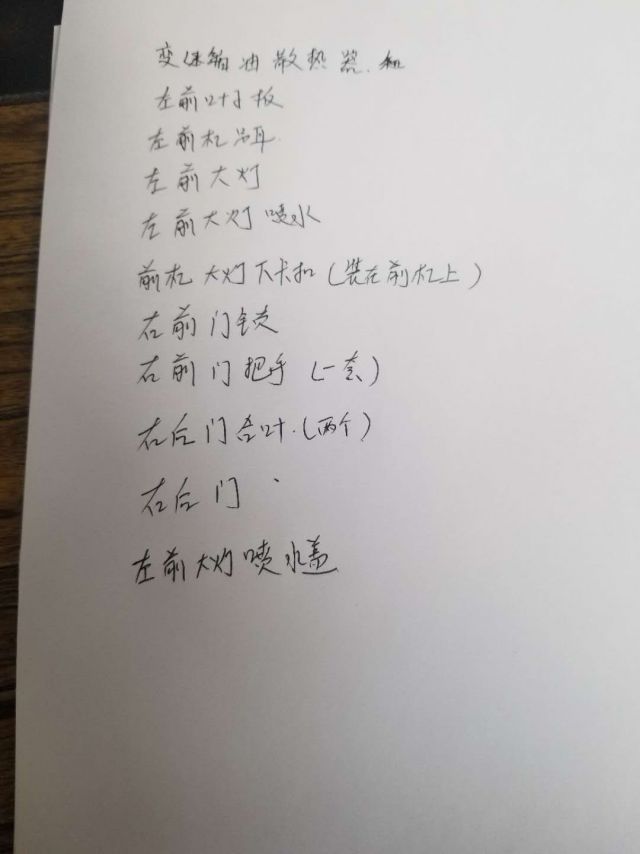 变速箱油散热器.
左前叶子板
左前杠吊耳.
左前大灯
左前大灯喷水
前杠大灯下卡扣(装在前杠上)
右前门铰
右前门把手(一套)
右后门合叶.(两个)
右后门
左前大灯喷水盖